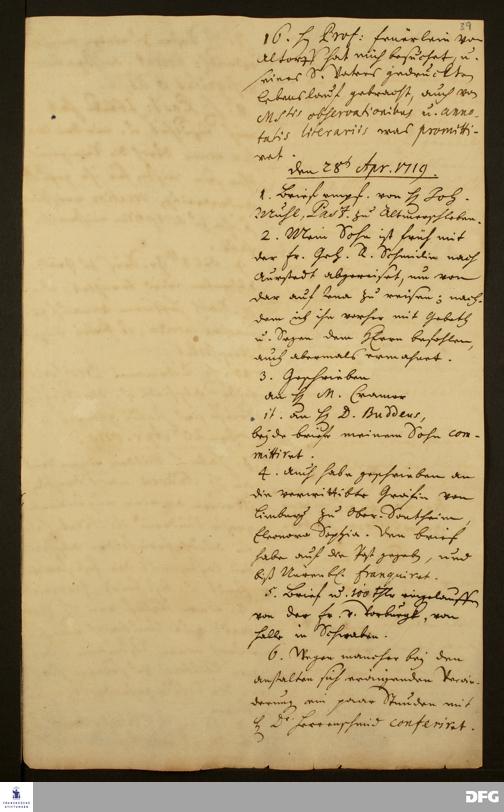 39
16. H Prof: Feuerlein von
Altorff hat mich besuchet, u.
seines S. Vaters gedruckten
Lebenslauf gebracht, auch von
Mstis observationibus u. anno-
tatis literariis was promitti-
ret.
den 28t Apr. 1719.
1. Brief empf. von H Joh.
Mühl, Past. zu
2. Mein Sohn ist früh mit
der Fr. Geh. R. Schmidin nach
Aurstedt abgereiset, um von
dar auf Jena zu reisen; nach-
dem ich ihn vorher mit Gebeth
u. Segen dem HErrn befohlen,
auch abermals ermahnet.
3. Geschrieben
an H M. Cramer
it. an H D. Buddeus,
beyde briefe meinem Sohn com-
mittiret.
4. Auch habe geschrieben an
die verwittibte Gräfin von
Limburg zu Ober-Sontheim,
Eleonora Sophia. Den brief
habe auf die Post gegeben, und
biß Nürenb. franquiret.
5. Brief u. 100 Thlr eingelauffen
von der Fr. v. , von
Halle in Schwaben.
6. Wegen mancher bey den
anstalten sich ereigenden Verän-
derung ein paar Stunden mit
H Dr Herrnschmid conferiret.
FRANCKESCHE
STIFTUNGEN
DFG